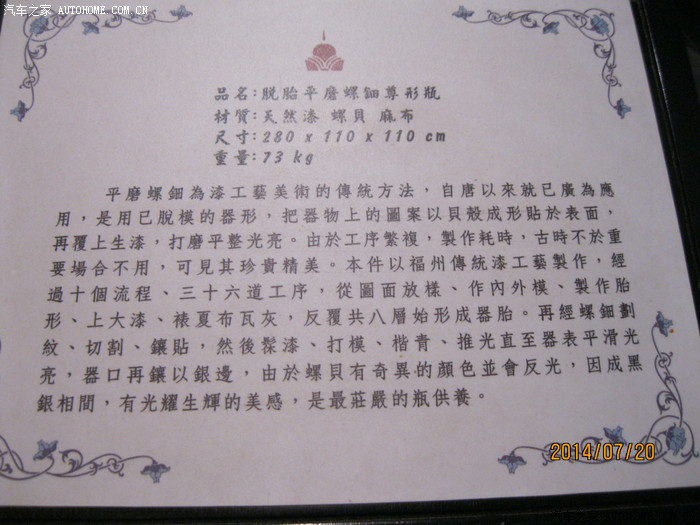 汽车之家 AUTOHOME.COM.CN
品名:脫胎平磨螺鈿尊形瓶
材質:天然漆 螺貝 麻布
尺寸:280 x 110 x 110 cm
重量:73 kg
平磨螺鈿為漆工藝美術的傳統方法,自唐以來就已廣為應
用,是用已脫模的器形,把器物上的圖案以貝殼成形貼於表面,
再覆上生漆,打磨平整光亮。由於工序繁複,製作耗時,古時不於重
要場合不用,可見其珍貴精美。本件以福州傳統漆工藝製作,經
過十個流程、三十六道工序,從圖面放樣、作內外模、製作胎
形、上大漆、裱夏布瓦灰,反覆共八層始形成器胎。再經螺鈿劃
紋、切割、鑲貼,然後髹漆、打模、楷青、推光直至器表平滑光
亮,器口再鑲以銀邊,由於螺貝有奇異的顏色並會反光,因成黑
銀相間,有光耀生輝的美感,是最莊嚴的瓶供養。
2014/07/20